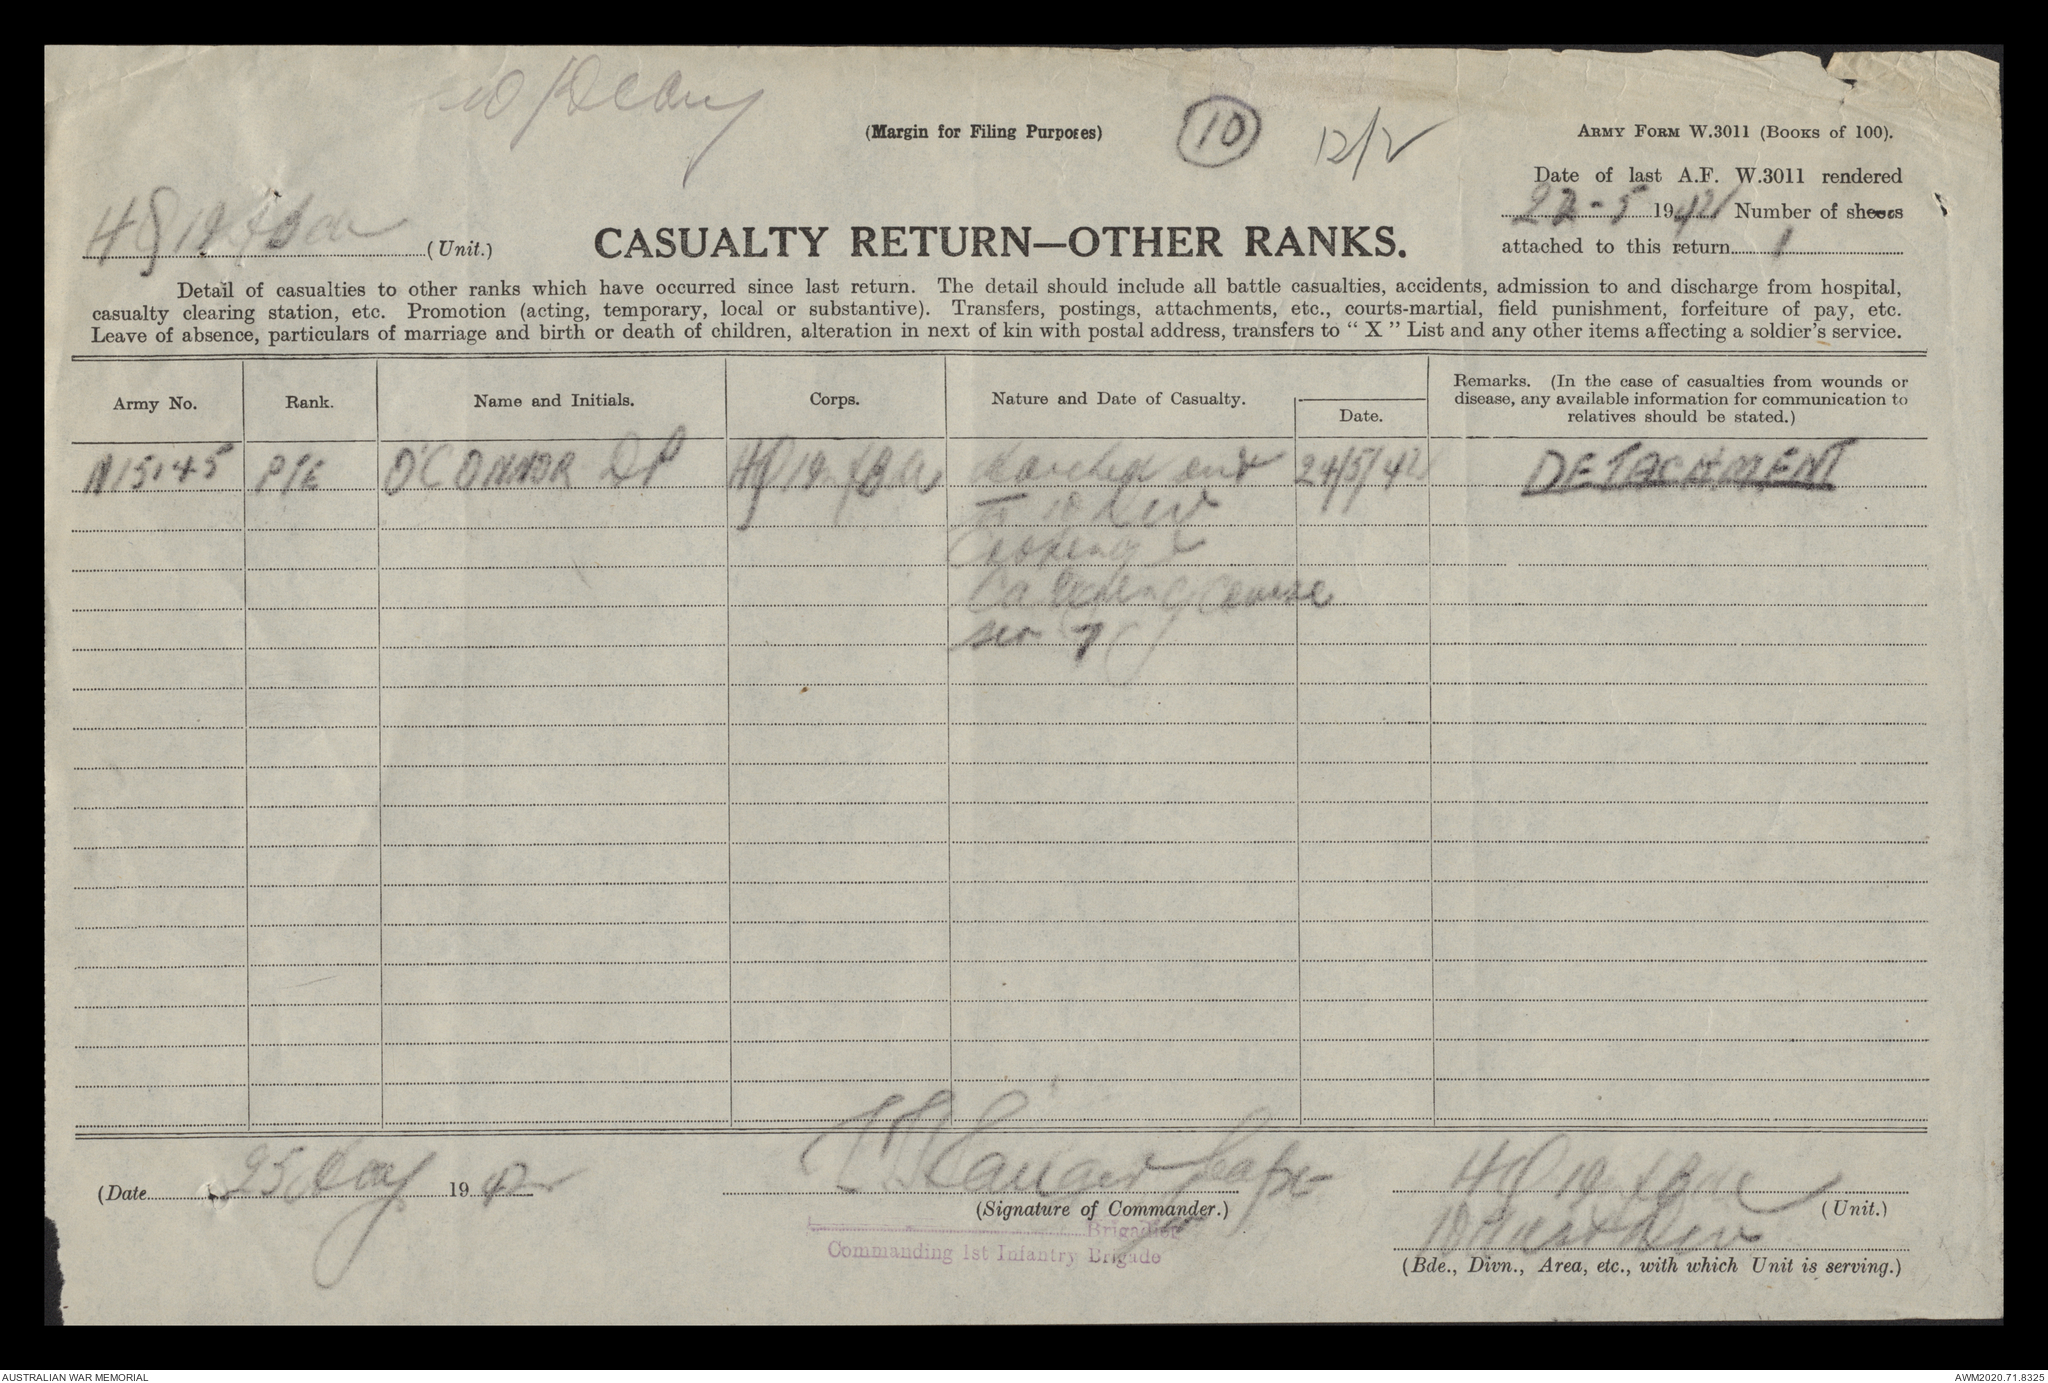 (Margin for Filing Purposes)
10
12/2
ARMY FORM W.3011 (BOOKS of 100).
Date of last A.F. W.3011 rendered
22-5 1942 Number of sheets
attached to this return 1
(Unit.)
CASUALTY RETURN—OTHER RANKS.
Detail of casualties to other ranks which have occurred since last return. The detail should include all battle casualties, accidents, admission to and discharge from hospital,
casualty clearing station, etc. Promotion (acting, temporary, local or substantive). Transfers, postings, attachments, etc., courts-martial, field punishment, forfeiture of pay, etc.
Leave of absence, particulars of marriage and birth or death of children, alteration in next of kin with postal address, transfers to " X " List and any other items affecting a soldier's service.
Army No. Rank. Name and Initials. Corps. Nature and Date of Casualty. Date.
Remarks. (In the case of casualties from wounds or
disease, any available information for communication to
relatives should be stated.)
N15145 PTE O'CONNOR DP Marched out 24/5/42 DETACHMENT
to 10 Div
Cooking &
Catering Course
Ser 7
(Date 25 May 1942
(Signature of Commander.)
Brigadier
Commanding 1st Infantry Brigade
(Unit.)
10 Aust Div
(Bde., Divn., Area, etc., with which Unit is serving.)
AUSTRALIAN WAR MEMORIAL
AWM2020.71.8325